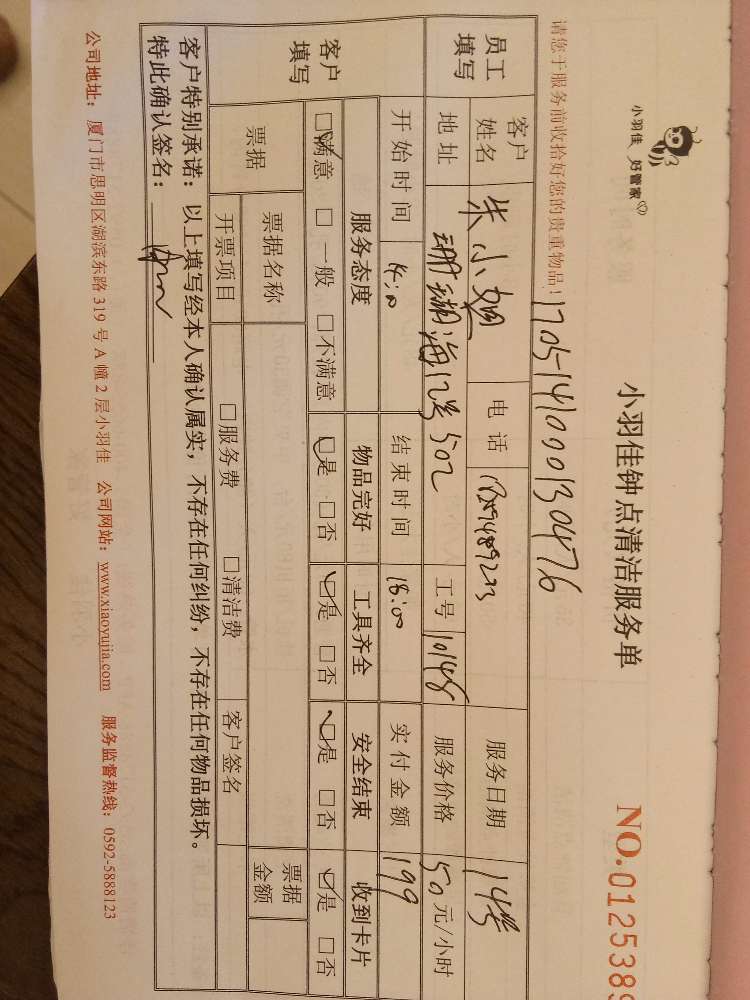 小羽佳 好管家
小羽佳钟点清洁服务单
NO.0125389
请您于服务前收拾好您的贵重物品!
170514100130476
员工填写
客户姓名 朱小姐 电话 服务日期 14号
地址 珊瑚海12号502 工号 10148 服务价格 50元/小时
开始时间 14:00 结束时间 18:00 实付金额 199
客户填写
服务态度 物品完好 工具齐全 安全结束 收到卡片
□满意 □一般 □不满意 □是 □否 □是 □否 □是 □否 □是 □否
票据 票据名称 票据金额
开票项目 □服务费 □清洁费 客户签名
客户特别承诺: 以上填写经本人确认属实,不存在任何纠纷,不存在任何物品损坏。
特此确认签名:
公司地址: 厦门市思明区湖滨东路 319 号 A 幢 2 层小羽佳 公司网站: www.xiaoyujia.com 服务监督热线: 0592-5888123